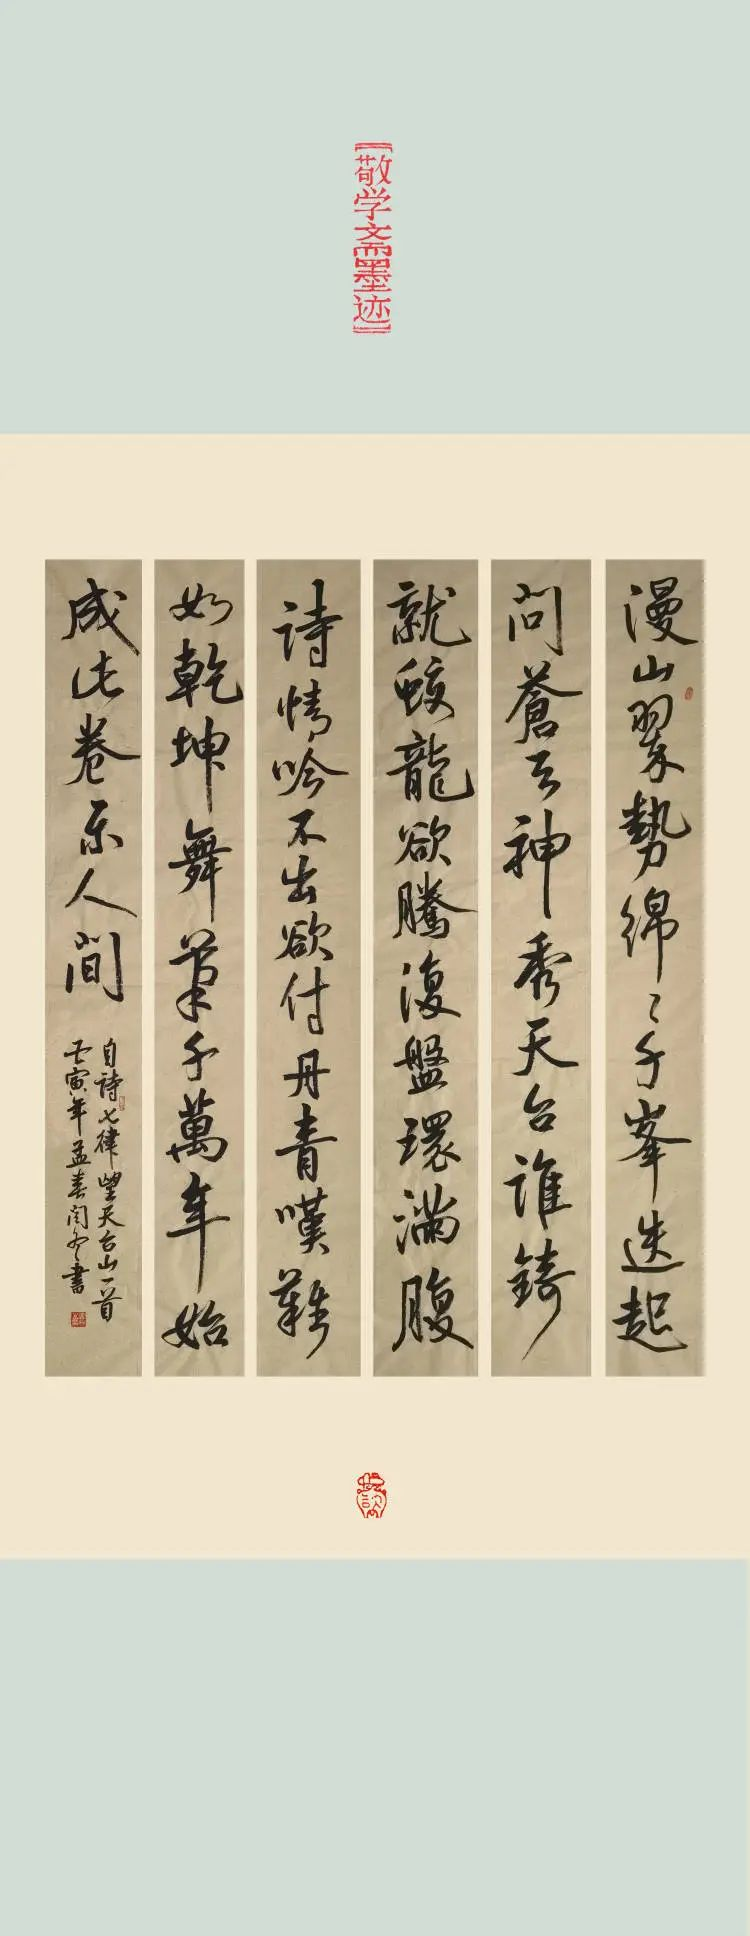 【敬学斋墨迹】
漫山翠勢綿〻千峯迭起
問蒼天神秀天台誰鑄
就蛟龍欲騰復盤環滿腹
詩情吟不出欲付丹青嘆難
如乾坤舞筆千萬年始
成此卷示人間
自詩七律望天台山一首
壬寅年孟春閆冬書